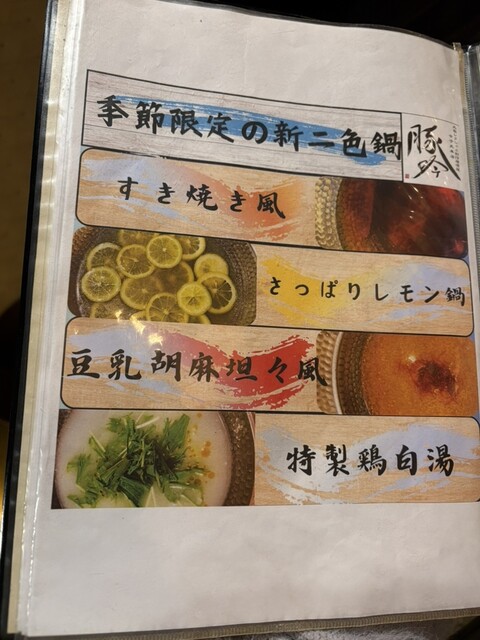 季節限定の新二色鍋
すき焼き風
さっぱりレモン鍋
豆乳胡麻坦々風
特製鶏白湯